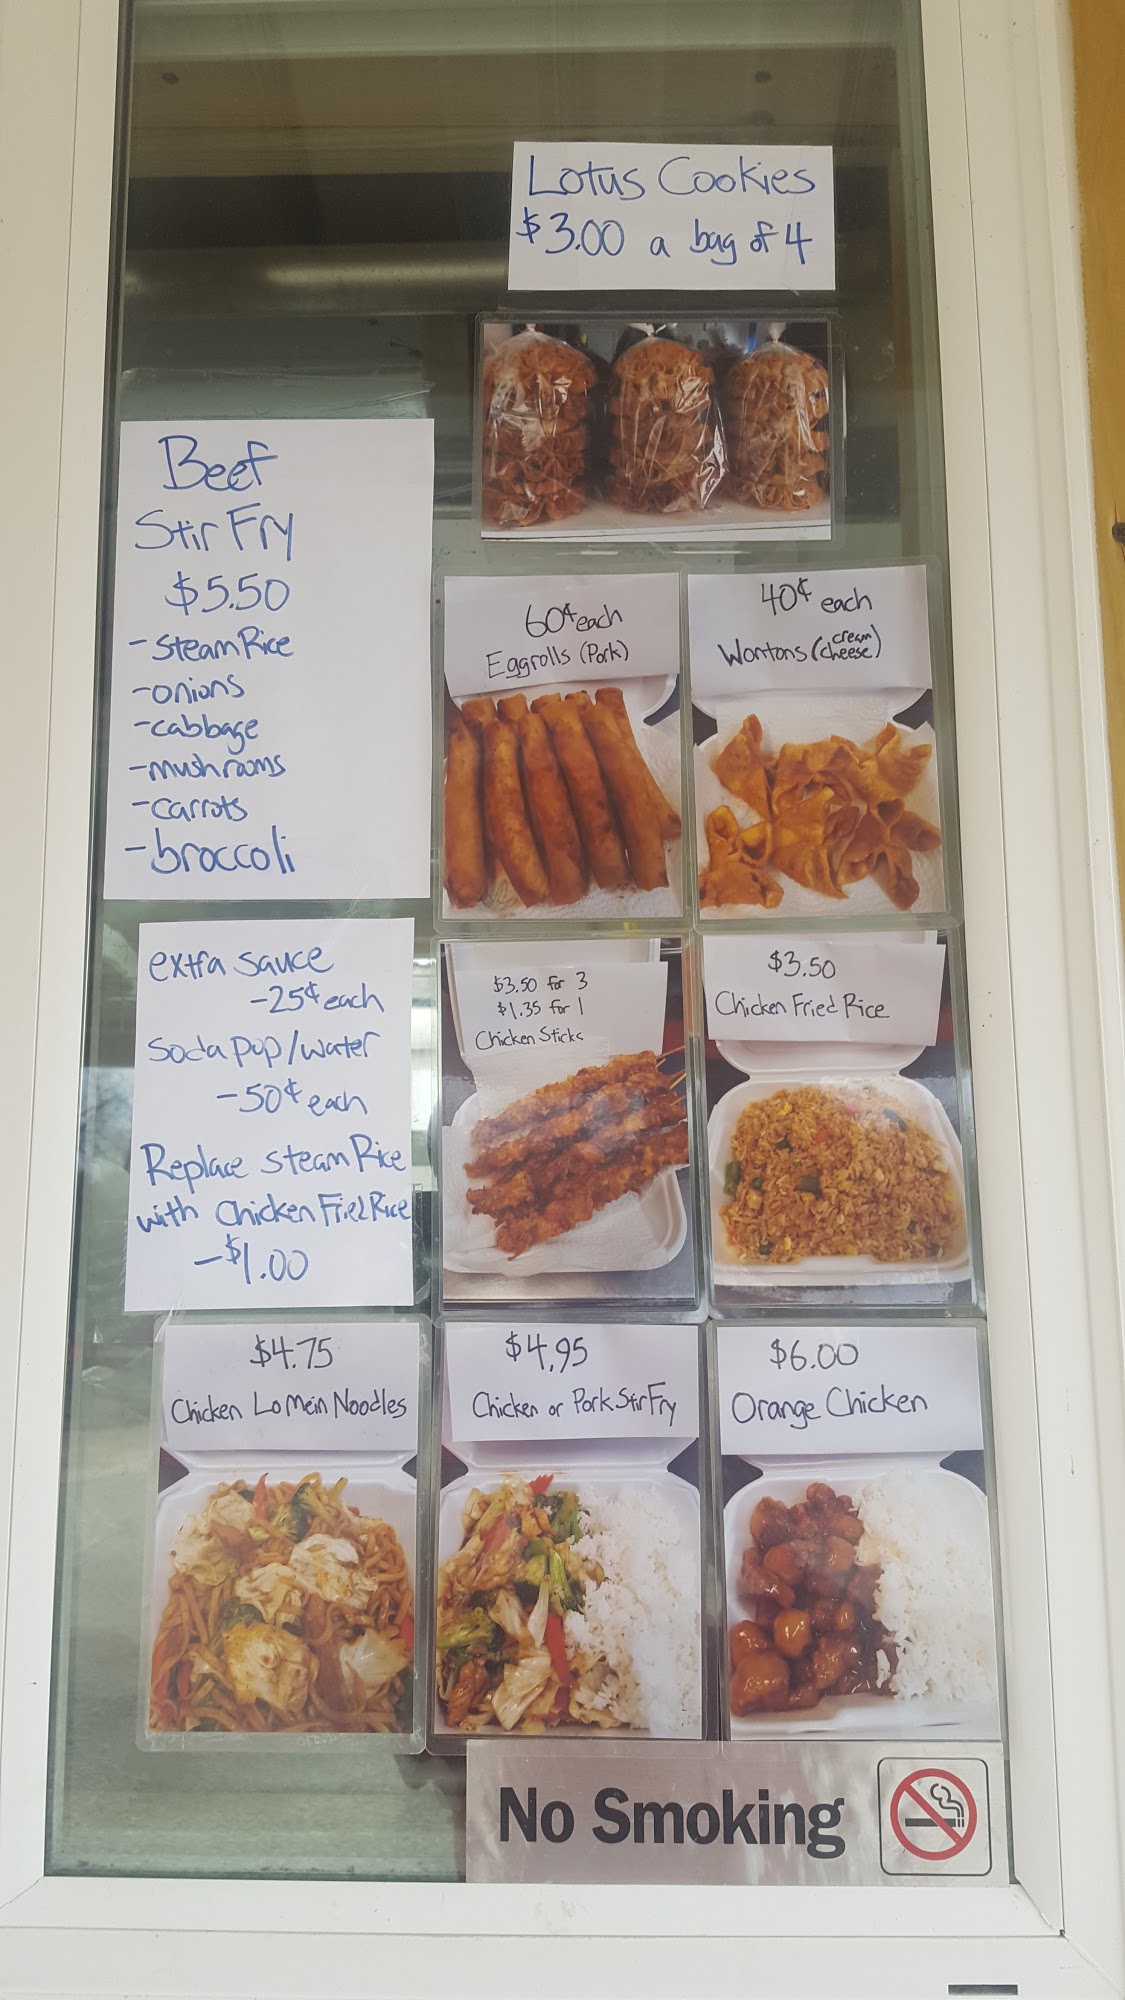 Lotus Cookies
$3.00 a bag of 4
Beef
Stir Fry
$5.50
-steam Rice
-onions
-cabbage
-mushrooms
-carrots
-broccoli
60¢ each
Eggrolls (Pork)
40¢ each
Wontons (cream cheese)
extra sauce
-25¢ each
Soda pop/water
-50¢ each
Replace steam Rice
with Chicken Fried Rice
-$1.00
$3.50 for 3
$1.35 for 1
Chicken Sticks
$3.50
Chicken Fried Rice
$4.75
Chicken Lo Mein Noodles
$4.95
Chicken or Pork Stir Fry
$6.00
Orange Chicken
No Smoking